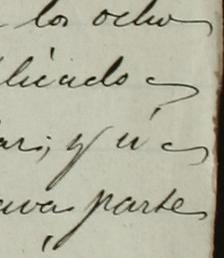 los ocho
licado
ar; y á
ava parte